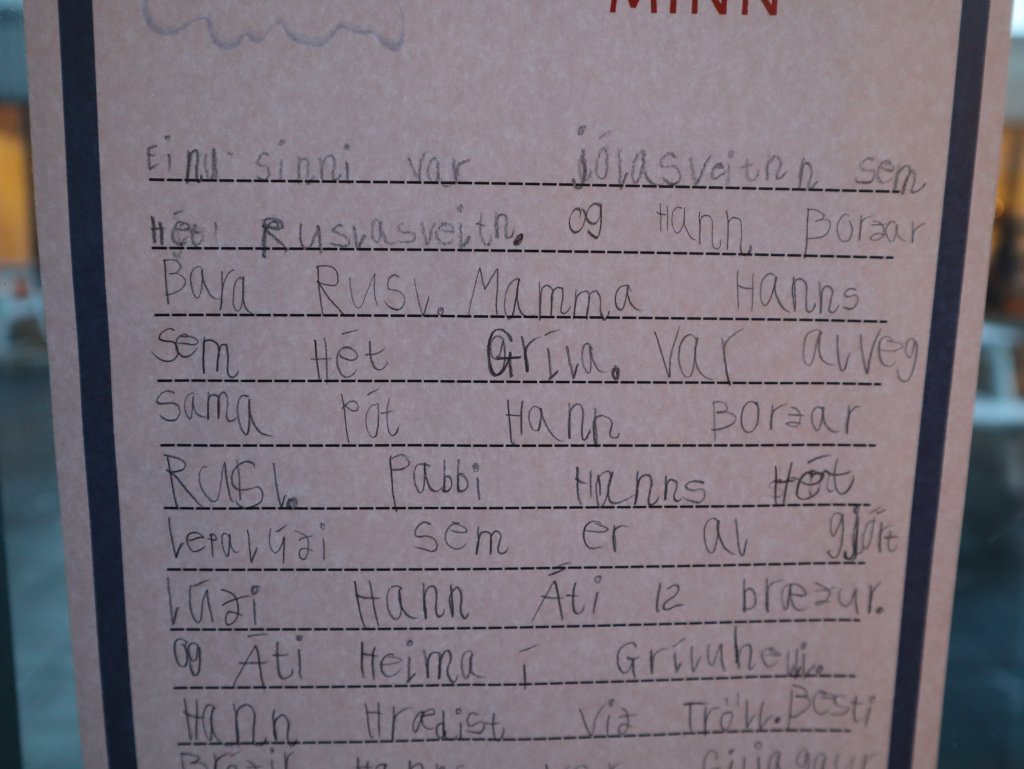 MINN
Einu sinni var jólasveitnn sem
Hét Ruslasveitn. og Hann Borzar
Bara RUSL. Mamma Hanns
sem Hét Gríla. Var alveg
sama þót Hann Borzar
RUSL. Pabbi Hanns Hét
lepalúzi sem er al gjört
lúzi Hann Áti 12 bræzur.
og Áti Heima í
Hann Hrædist viz Tröll. Besti